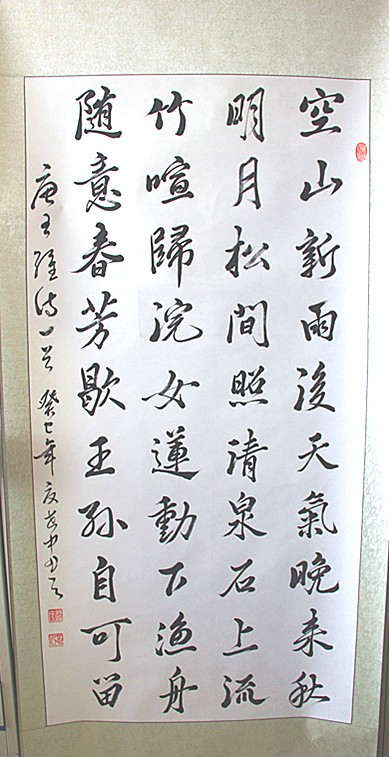 空山新雨後天氣晚来秋
明月松間照清泉石上流
竹喧歸浣女蓮動下渔舟
随意春芳歇王孙自可留
唐王維诗一首 癸巳年